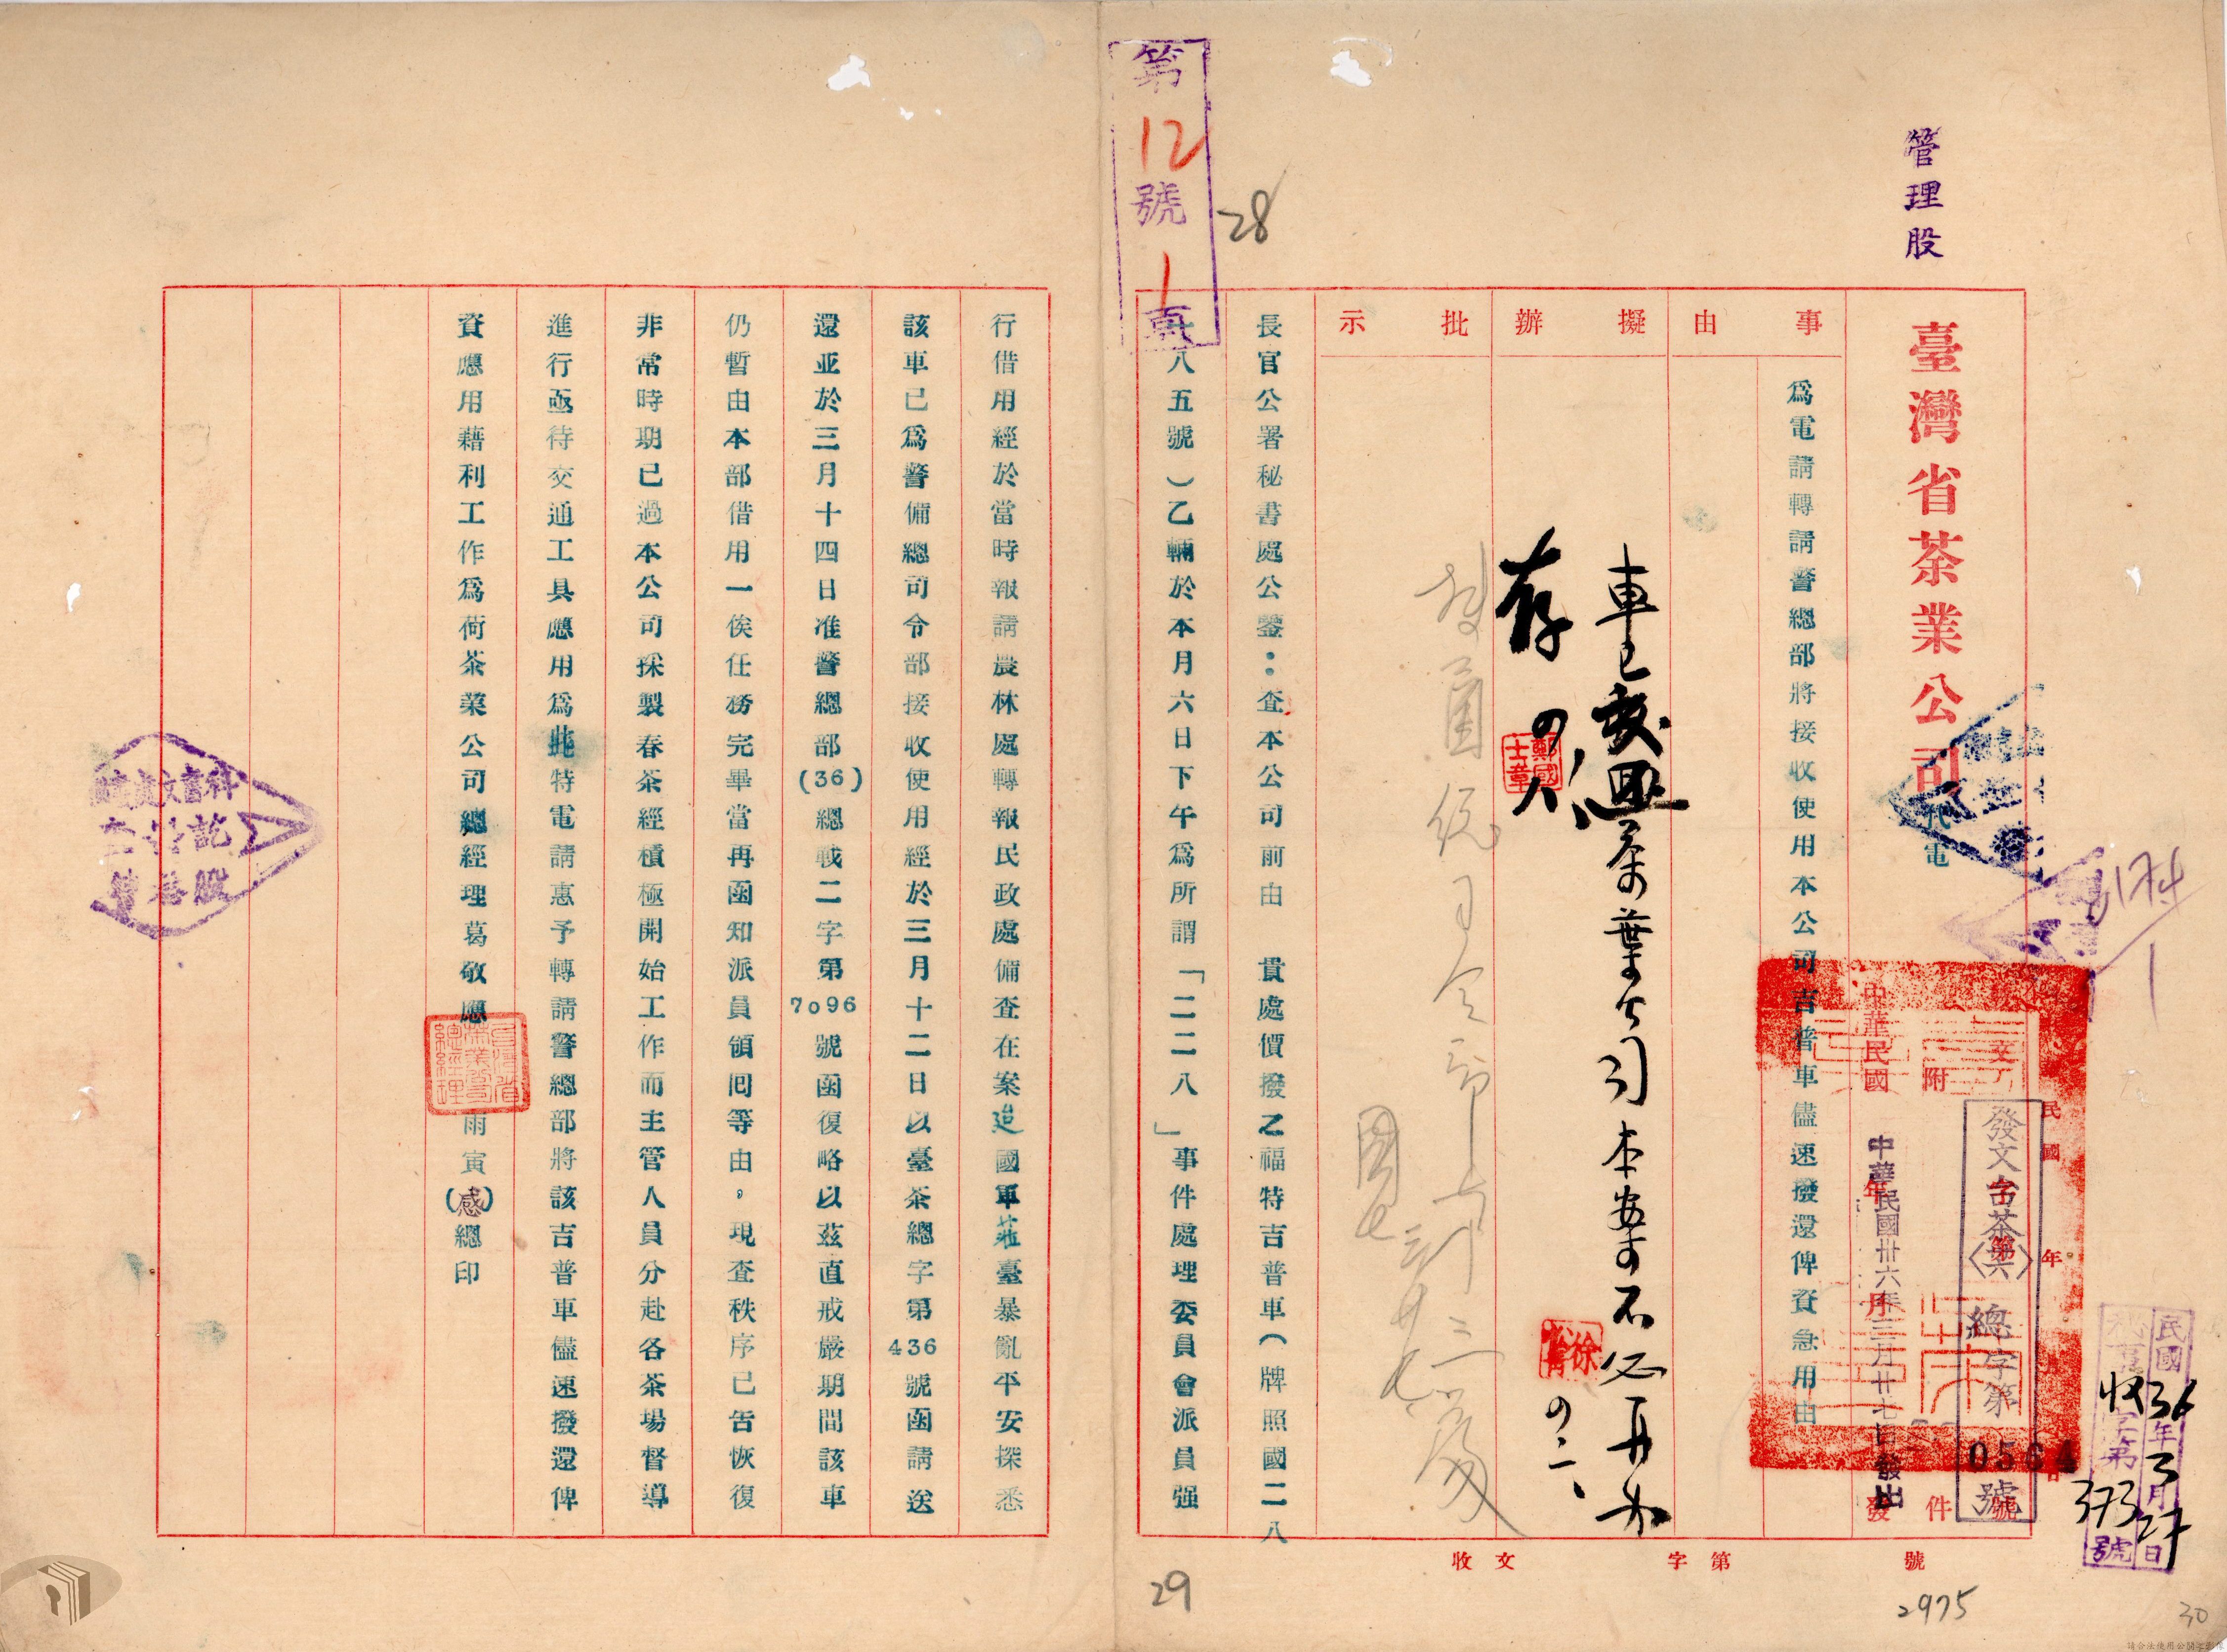 管理股
臺灣省茶業公司代電
事由
為電請轉請警總部將接收使用本公司吉普車儘速撥還俾資急用由
擬辦
車已發還茶葉公司本案不必再办
四、二、
批示
存
四、八
長官公署秘書處公鑒：查本公司前由　貴處價撥之福特吉普車（牌照國二八
八五號）乙輛於本月六日下午為所謂「二二八」事件處理委員會派員强
行借用經於當時報請農林處轉報民政處備查在案迨國軍蒞臺暴亂平安探悉
該車已為警備總司令部接收使用經於三月十二日以臺茶總字第436號函請送
還亚於三月十四日准警總部(36)總戰二字第7096號函復略以茲值戒嚴期間該車
仍暫由本部借用一俟任務完畢當再函知派員領回等由，現查秩序已告恢復
非常時期已過本公司採製春茶經積極開始工作而主管人員分赴各茶場督導
進行亟待交通工具應用為此特電請惠予轉請警總部將該吉普車儘速撥還俾
資應用藉利工作為荷茶業公司總經理葛敬應
雨寅(感)總印
中華民國　年　月　日發
附件
中華民國卅六年三月廿七日發出
發文台茶(卅六)總字第0564號
民國36年3月27日
收字第373號
收文　字第　號
第12號1頁
28
29
2975
30